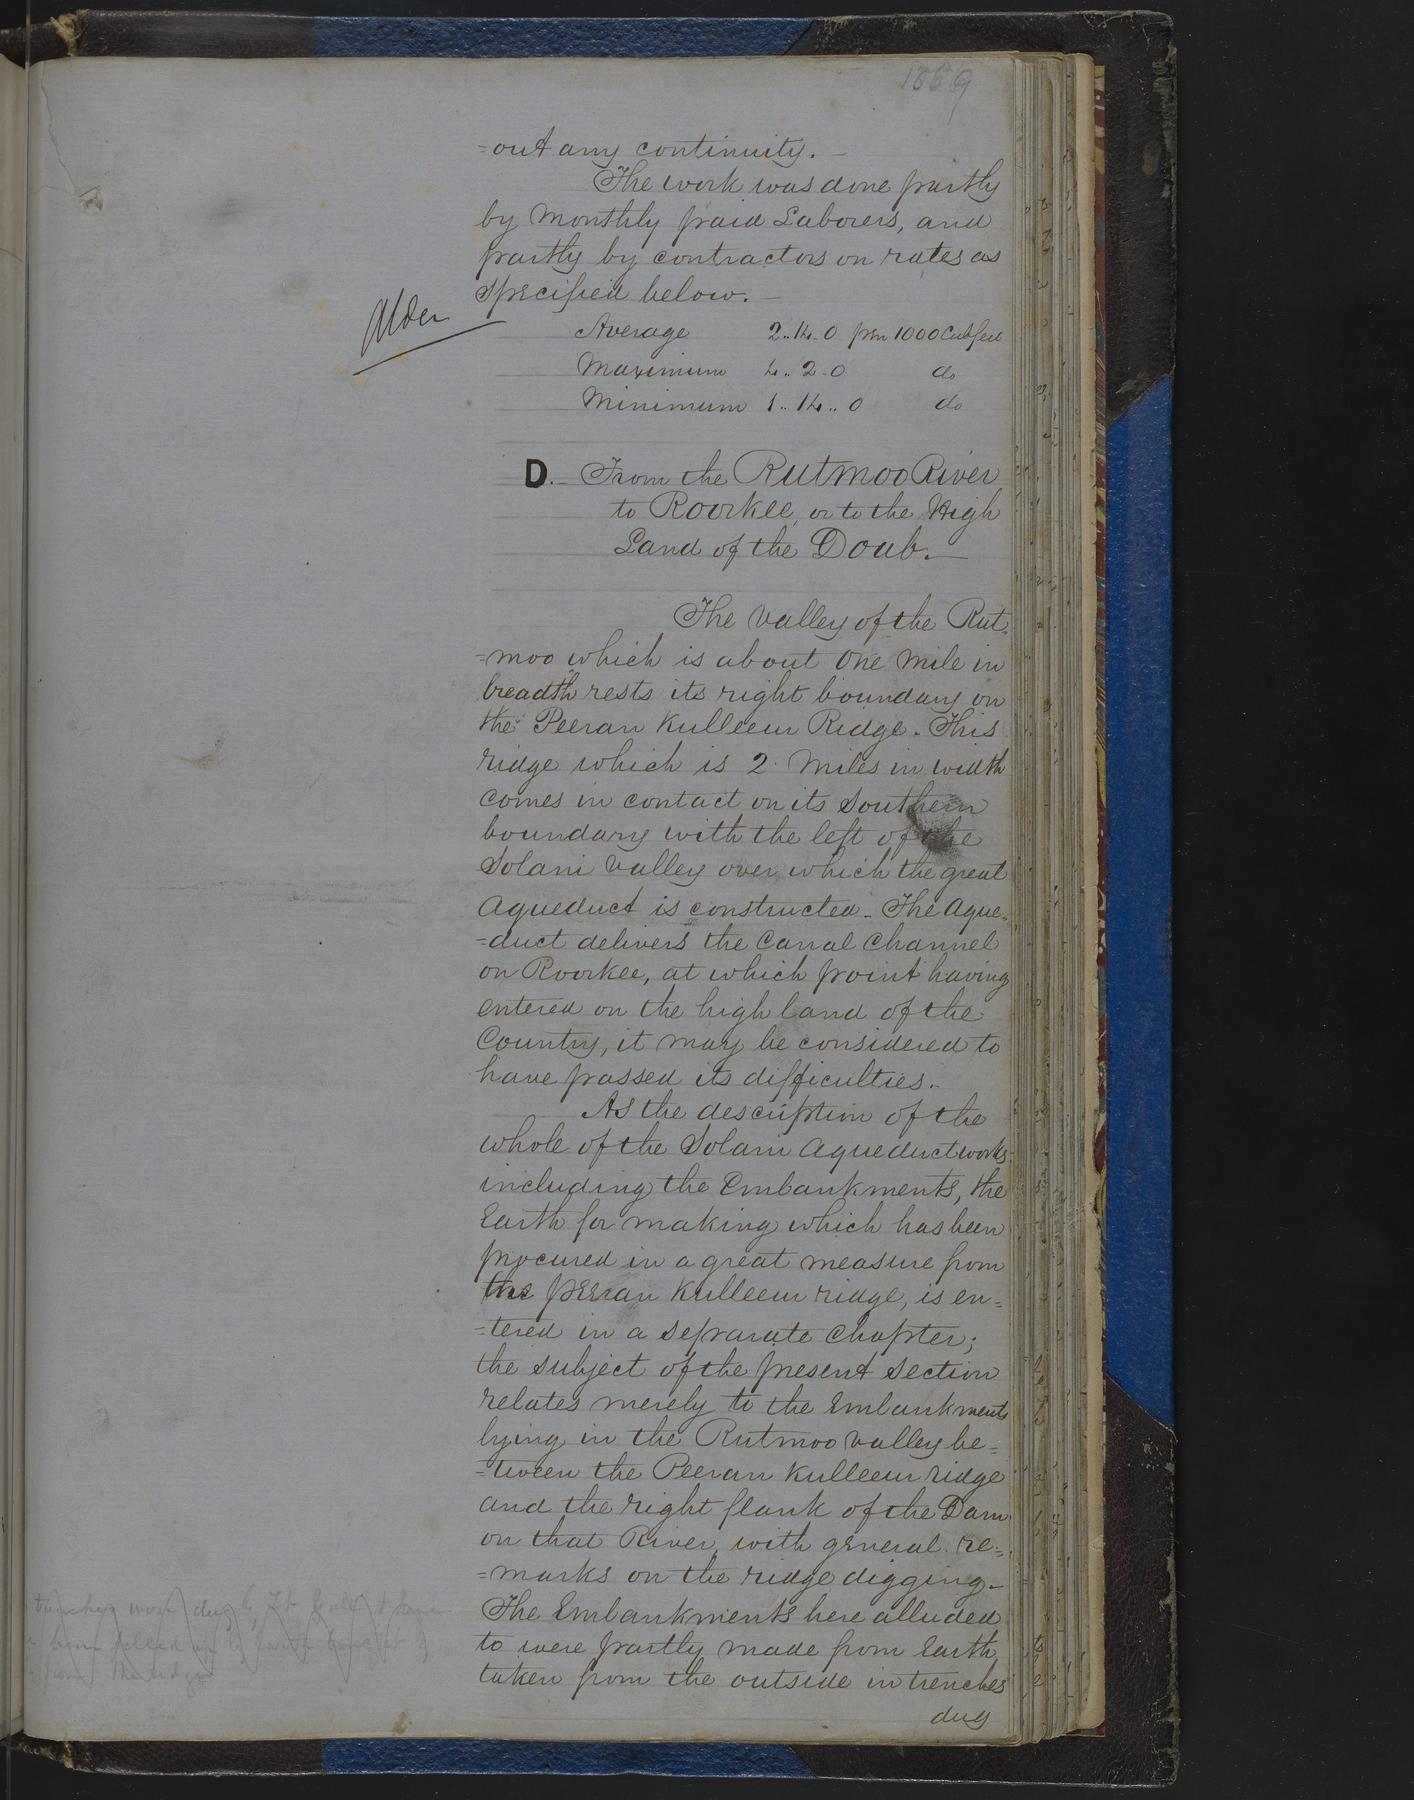 1869
=out any continuity. —
The work was done partly
by Monthly paid Laborers, and
partly by contractors on rates as
specified below. —
Average 2..14..0 per 1000 Cub feet
Maximum 4..2..0 do
Minimum 1..14..0 do
D. — From the Rutmoo River
to Roorkee, or to the High
Land of the Doub. —
The Valley of the Rut
=moo which is about One Mile in
breadth rests its right boundary on
the Peeran Kulleeur Ridge. This
ridge which is 2 Miles in width
comes in contact on its Southern
boundary with the left of the
Solani Valley over which the great
Aqueduct is constructed. The Aque=
=duct delivers the Canal Channel
on Roorkee, at which point having
entered on the high land of the
Country, it may be considered to
have passed its difficulties.
As the description of the
whole of the Solani Aqueduct works
including the Embankments, the
Earth for making which has been
procured in a great measure from
the Peeran Kulleeur ridge, is en=
=tered in a separate Chapter;
the subject of the present Section
relates merely to the Embankments
lying in the Rutmoo Valley be=
=tween the Peeran Kulleeur ridge
and the right flank of the Dam
on that River, with general re=
=marks on the ridge digging.
The Embankments here alluded
to were partly made from Earth
taken from the outside in trenches
dug